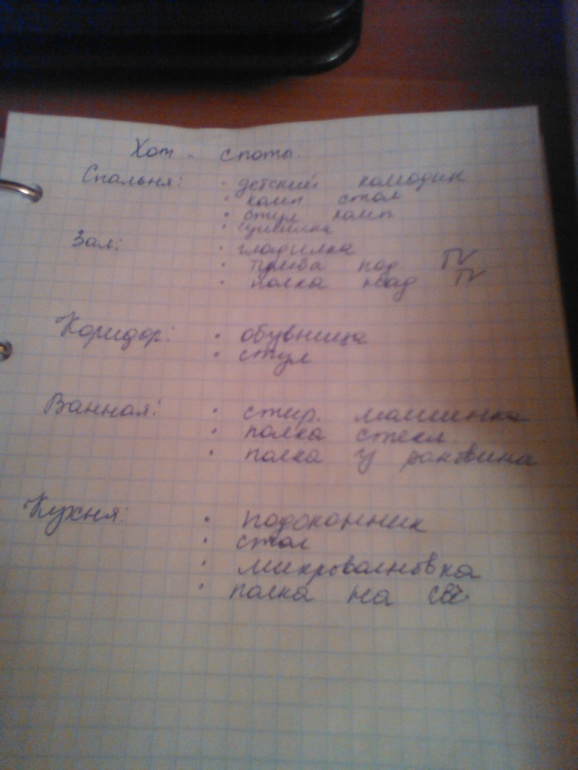 Хот - споты:
Спальня: · детский комодик
· комп. стол
· стул комп
· сушилка
Зал: · гладилка
· тумба под TV
· полка над TV
Коридор: · обувница
· стул
Ванная: · стир. машинка
· полка стекл
· полка у раковина
Кухня: · подоконник
· стол
· микроволновка
· полка на